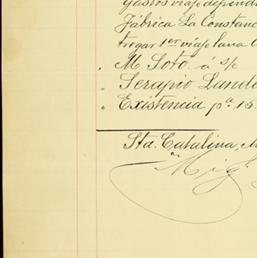 Gastos viaje depend
Fábrica La Constan
tregar 1er viaje lana
" M. Soto á s/c
" Serapio Land
" Existencia pa 15
Sta. Catalina, M
Migl